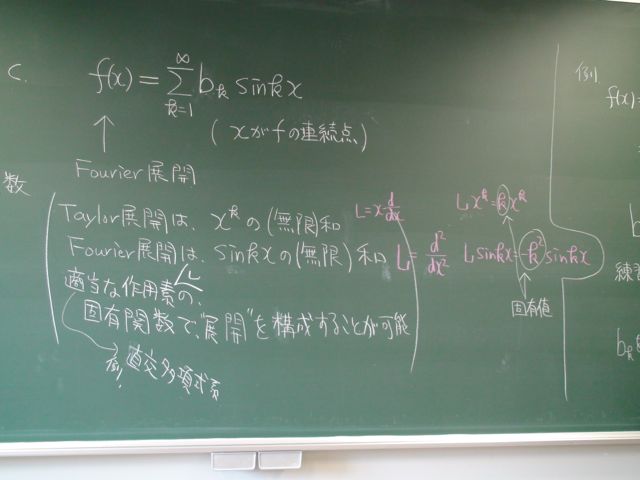 c.
f(x) = ∑_{k=1}^{∞} b_k sin kx
(xがfの連続点)
↑
Fourier展開
数
Taylor展開は、x^k の(無限)和
L = x d/dx
L x^k = k x^k
Fourier展開は、sin kx の(無限)和
L = d²/dx²
L sin kx = -k² sin kx
適当な作用素Lの、
固有値
固有関数で、"展開"を構成することが可能
例 直交多項式系
例
f(x)=
練習
b_k